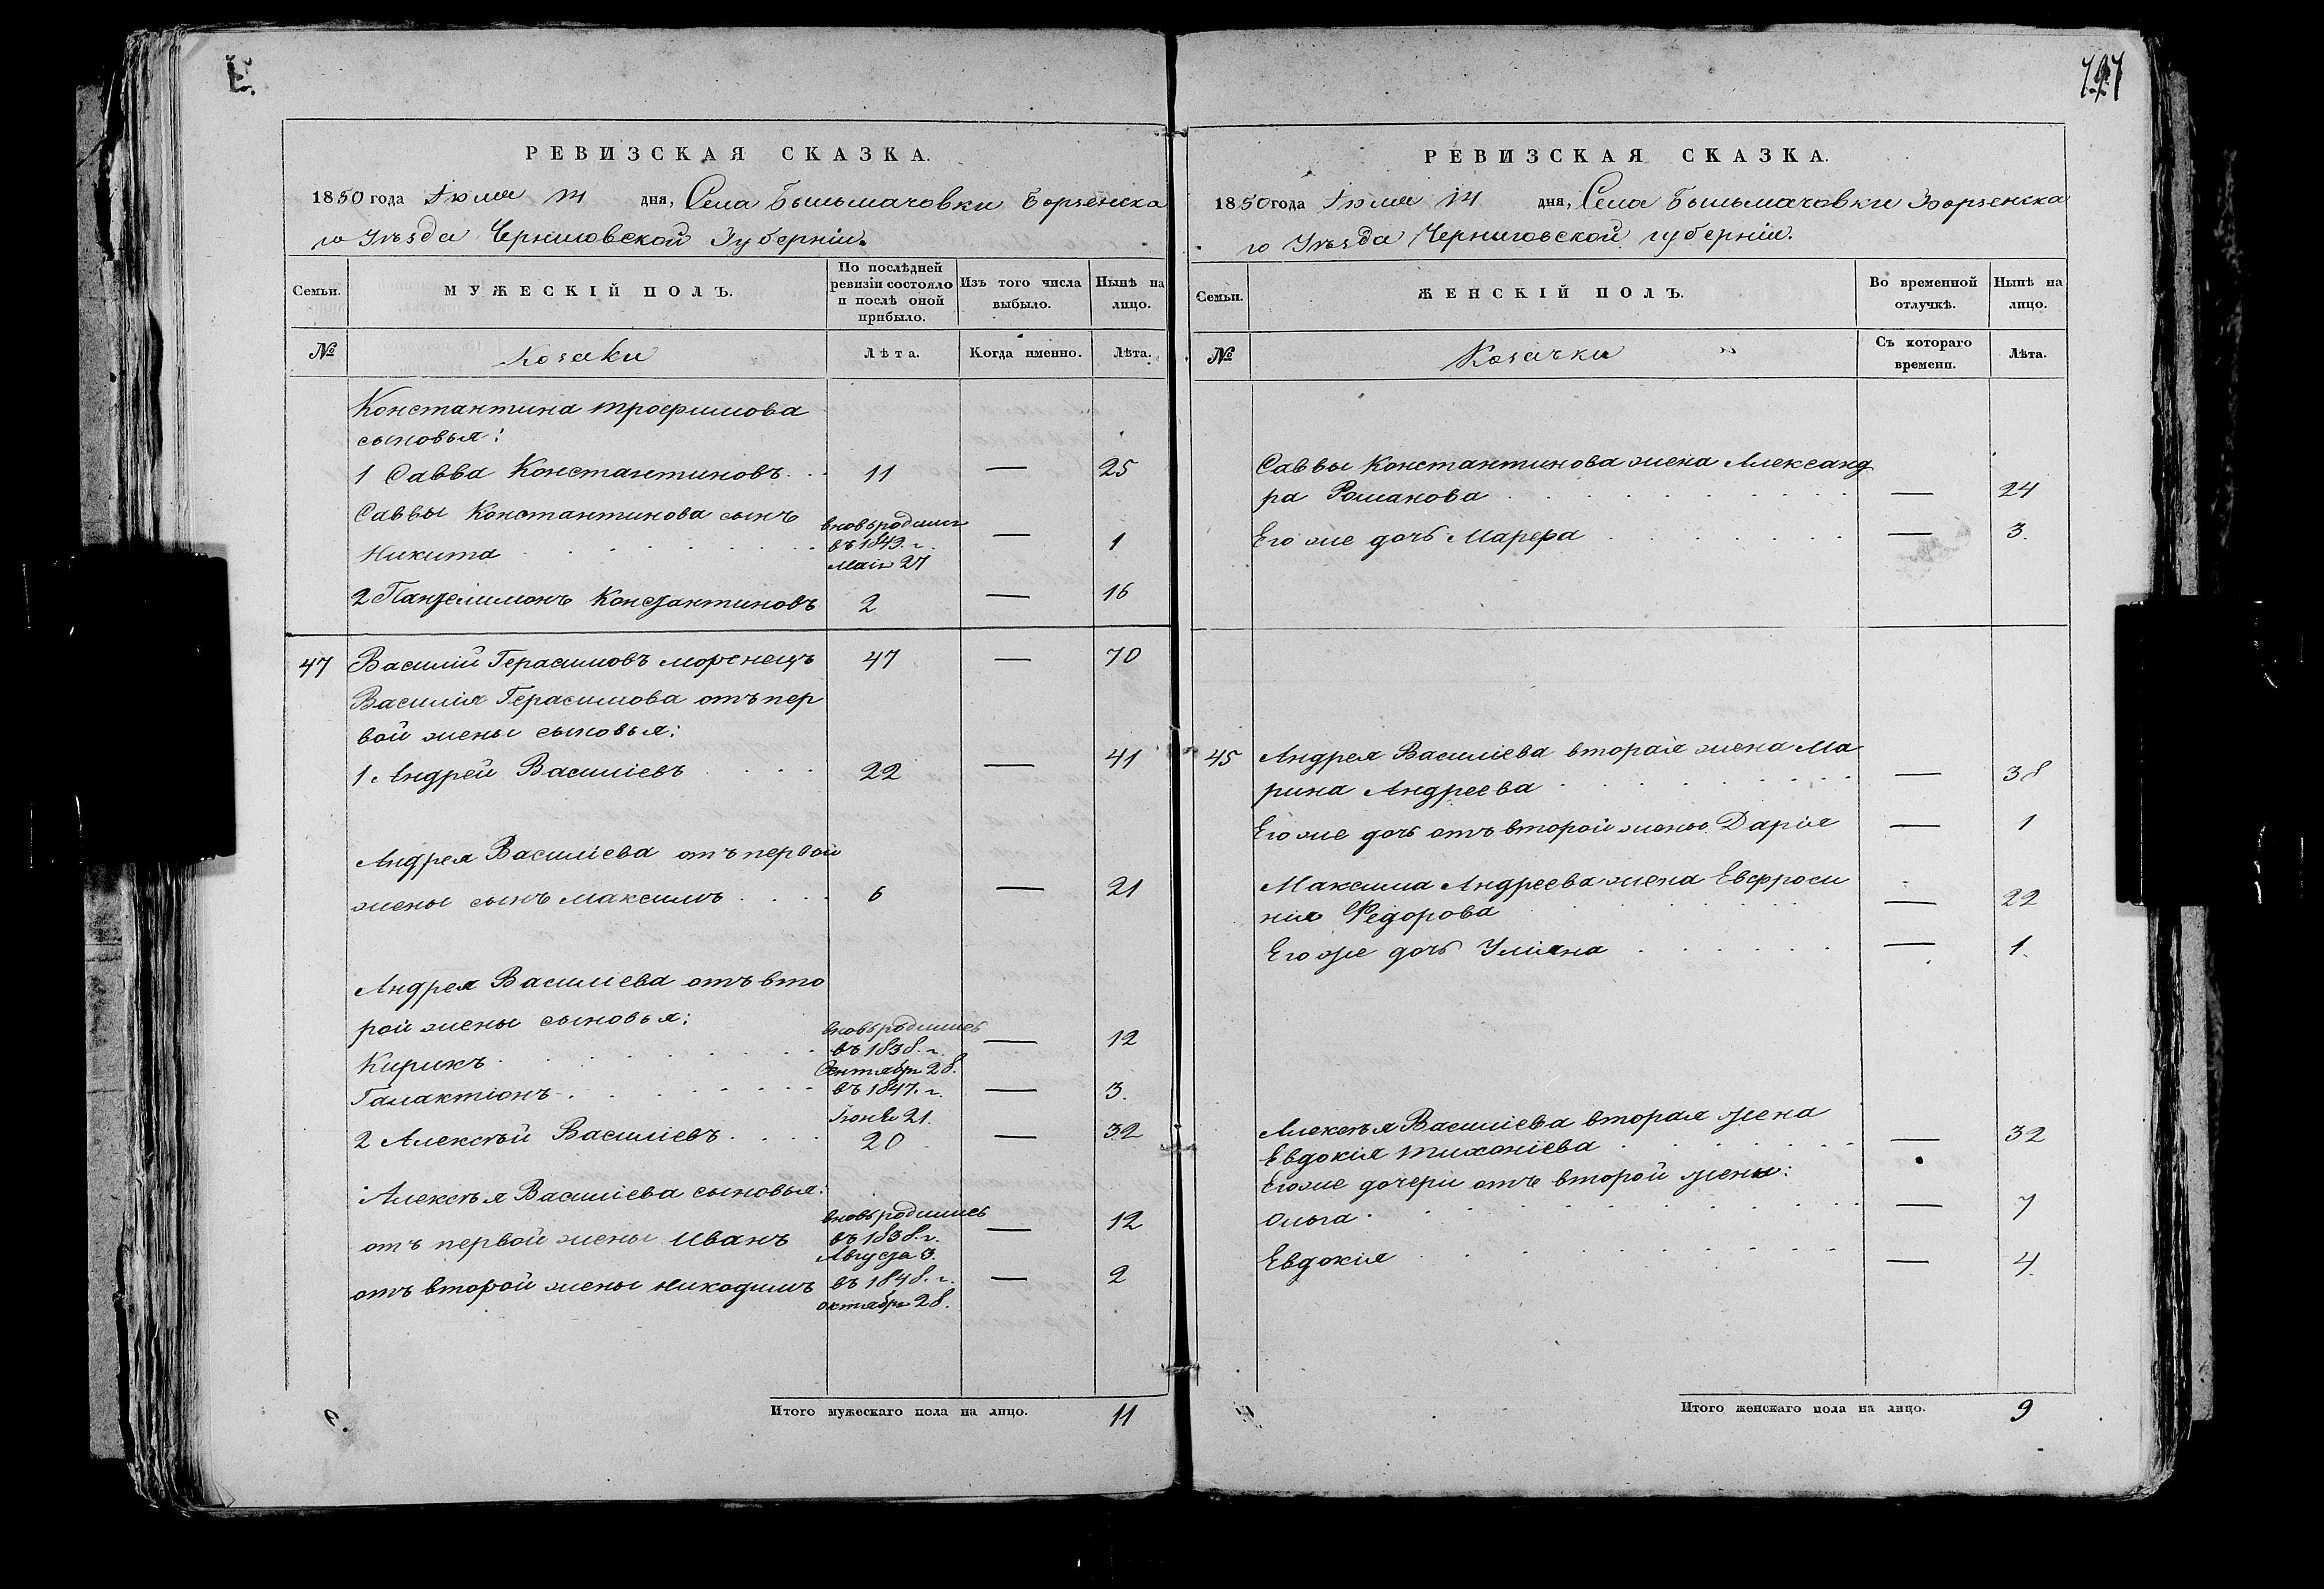 РЕВИЗСКАЯ СКАЗКА.
1850 года Іюля 14 дня, Села Бильмачовки Борзенска
го Уѣзда Черниговской Губерніи.
Семьи.
МУЖЕСКІЙ ПОЛЪ.
По послѣдней ревизіи состояло и послѣ оной прибыло.
Изъ того числа выбыло.
Нынѣ на лицо.
№
Козаки
Лѣта.
Когда именно.
Лѣта.
Константина Трофимова
сыновья:
1 Савва Константиновъ 11 — 25
Саввы Константинова сынъ вновь родился
Никита въ 1849. г. — 1
Маія 27
2 Пантелимонъ Константиновъ 2 — 16
47 Василій Герасимовъ Морснецъ 47 — 70
Василія Герасимова отъ пер
вой жены сыновья:
1 Андрей Василіевъ 22 — 41
Андрея Василіева отъ первой
жены сынъ Максимъ 6 — 21
Андрея Василіева отъ вто
рой жены сыновья: вновь родились
Кирикъ въ 1838. г. — 12
Сентября 28.
Галактіонъ въ 1847. г. — 3.
Іюня 21.
2 Алексѣй Василіевъ 20 — 32
Алексѣя Василіева сыновья:
вновь родились
отъ первой жены Иванъ въ 1838. г. — 12
Августа 3.
отъ второй жены Никодимъ въ 1848. г. — 2
октября 28.
Итого мужескаго пола на лицо. 11
РЕВИЗСКАЯ СКАЗКА.
1850 года Іюля 14 дня, Села Бильмачовки Борзенска
го Уѣзда Черниговской губерніи.
Семьи.
ЖЕНСКІЙ ПОЛЪ.
Во временной отлучкѣ.
Нынѣ на лицо.
№
Козачки
Съ котораго времени.
Лѣта.
Саввы Константинова жена Александ
ра Романова — 24
Его же дочь Марфа — 3.
45 Андрея Василіева вторая жена Ма
рина Андреева — 38
Его же дочь отъ второй жены Дарія — 1
Максима Андреева жена Евфроси
нія Федорова — 22
Его же дочь Уліяна — 1.
Алексѣя Василіева вторая жена
Евдокія Тихоніева — 32
Его же дочери отъ второй жены:
Ольга — 7
Евдокія — 4.
Итого женскаго пола на лицо. 9